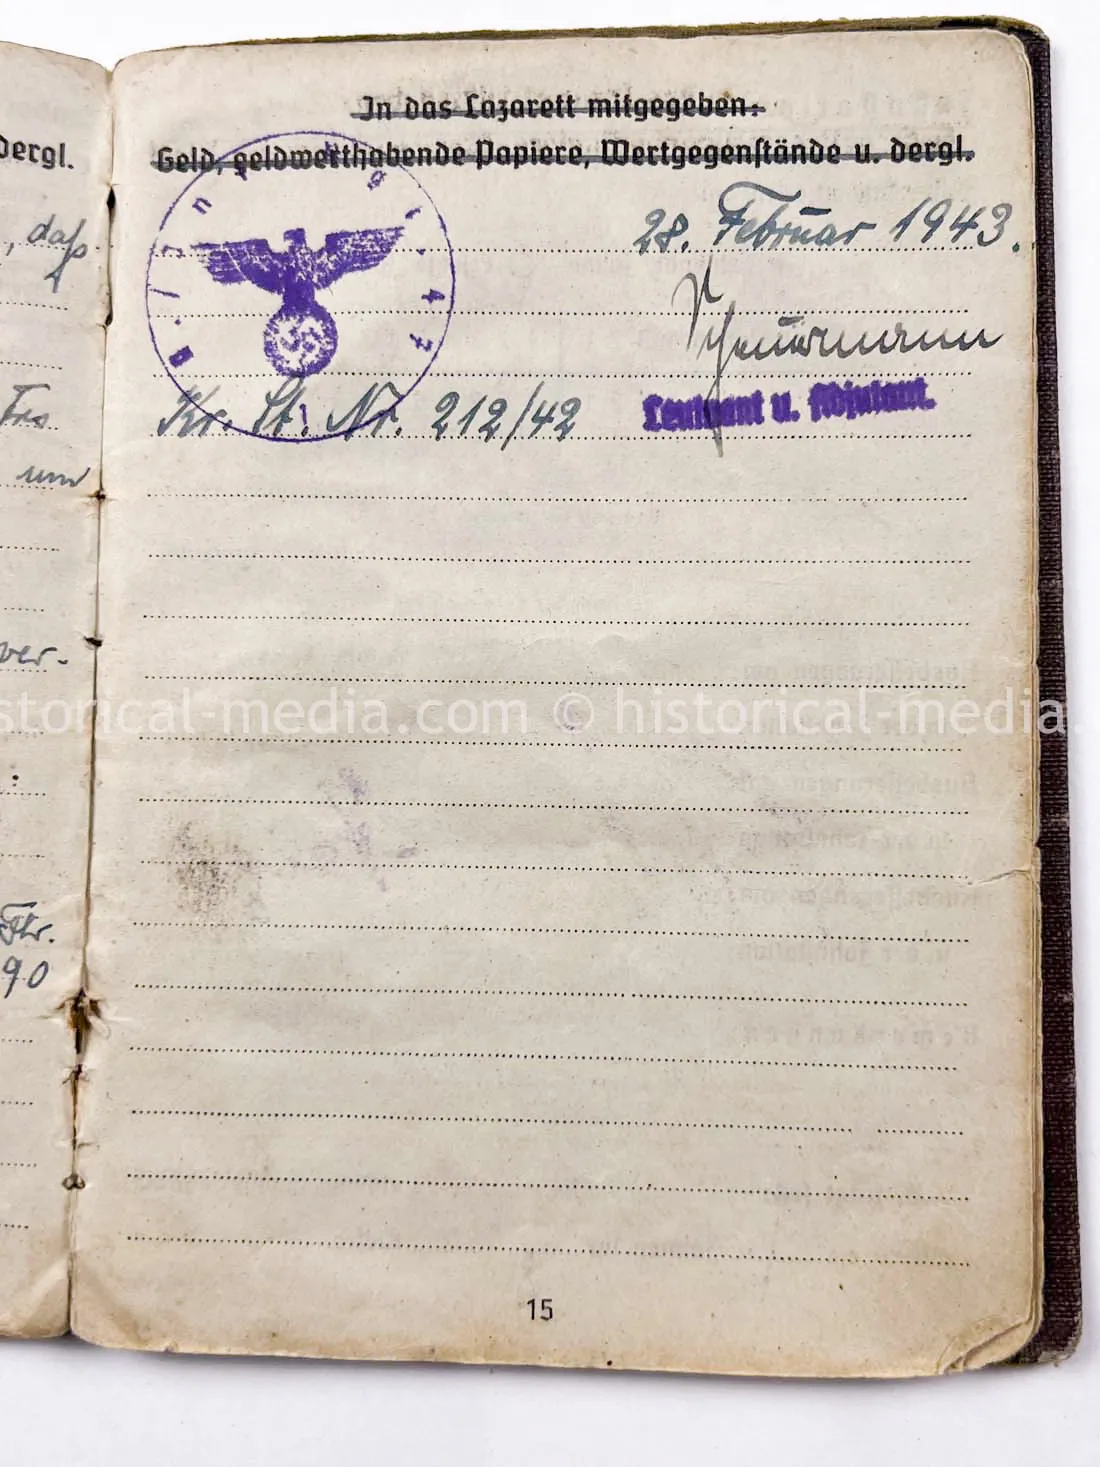 dergl.
, daß
Frs
und
ver-
:
Fkr.
90
In das Lazarett mitgegeben:
Geld, geldwerthabende Papiere, Wertgegenstände u. dergl.
28. Februar 1943.
Kr. St. Nr. 212/42
Leutnant u. Adjutant.
15
storical-media.com © historical-media.